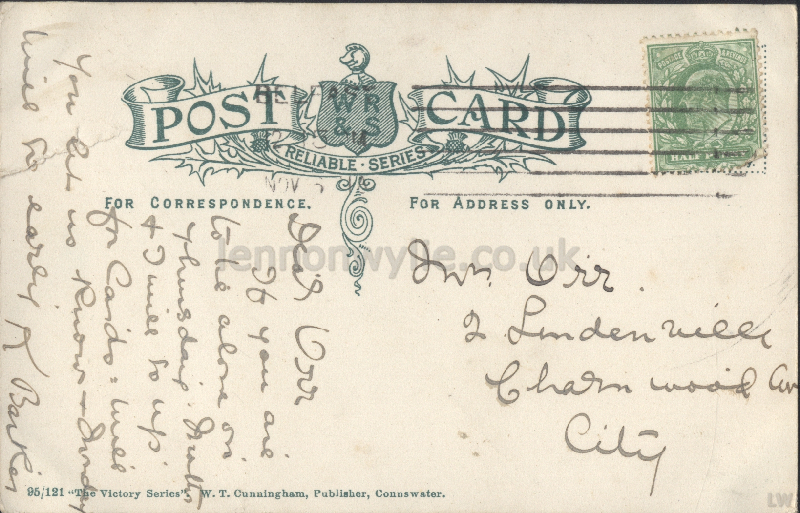 POST CARD
W R
& S
RELIABLE · SERIES
BELFAST
NOV 5
FOR CORRESPONDENCE.
FOR ADDRESS ONLY.
Dear Orr
If you are
to be alone on
thursday
& I will go up
for Cards: Will
You let us Know
will go early
Barker
Orr
2 Lindenville
Charnwood Av
City
95/121 "The Victory Series". W. T. Cunningham, Publisher, Connswater.
lennonwylie.co.uk
LW